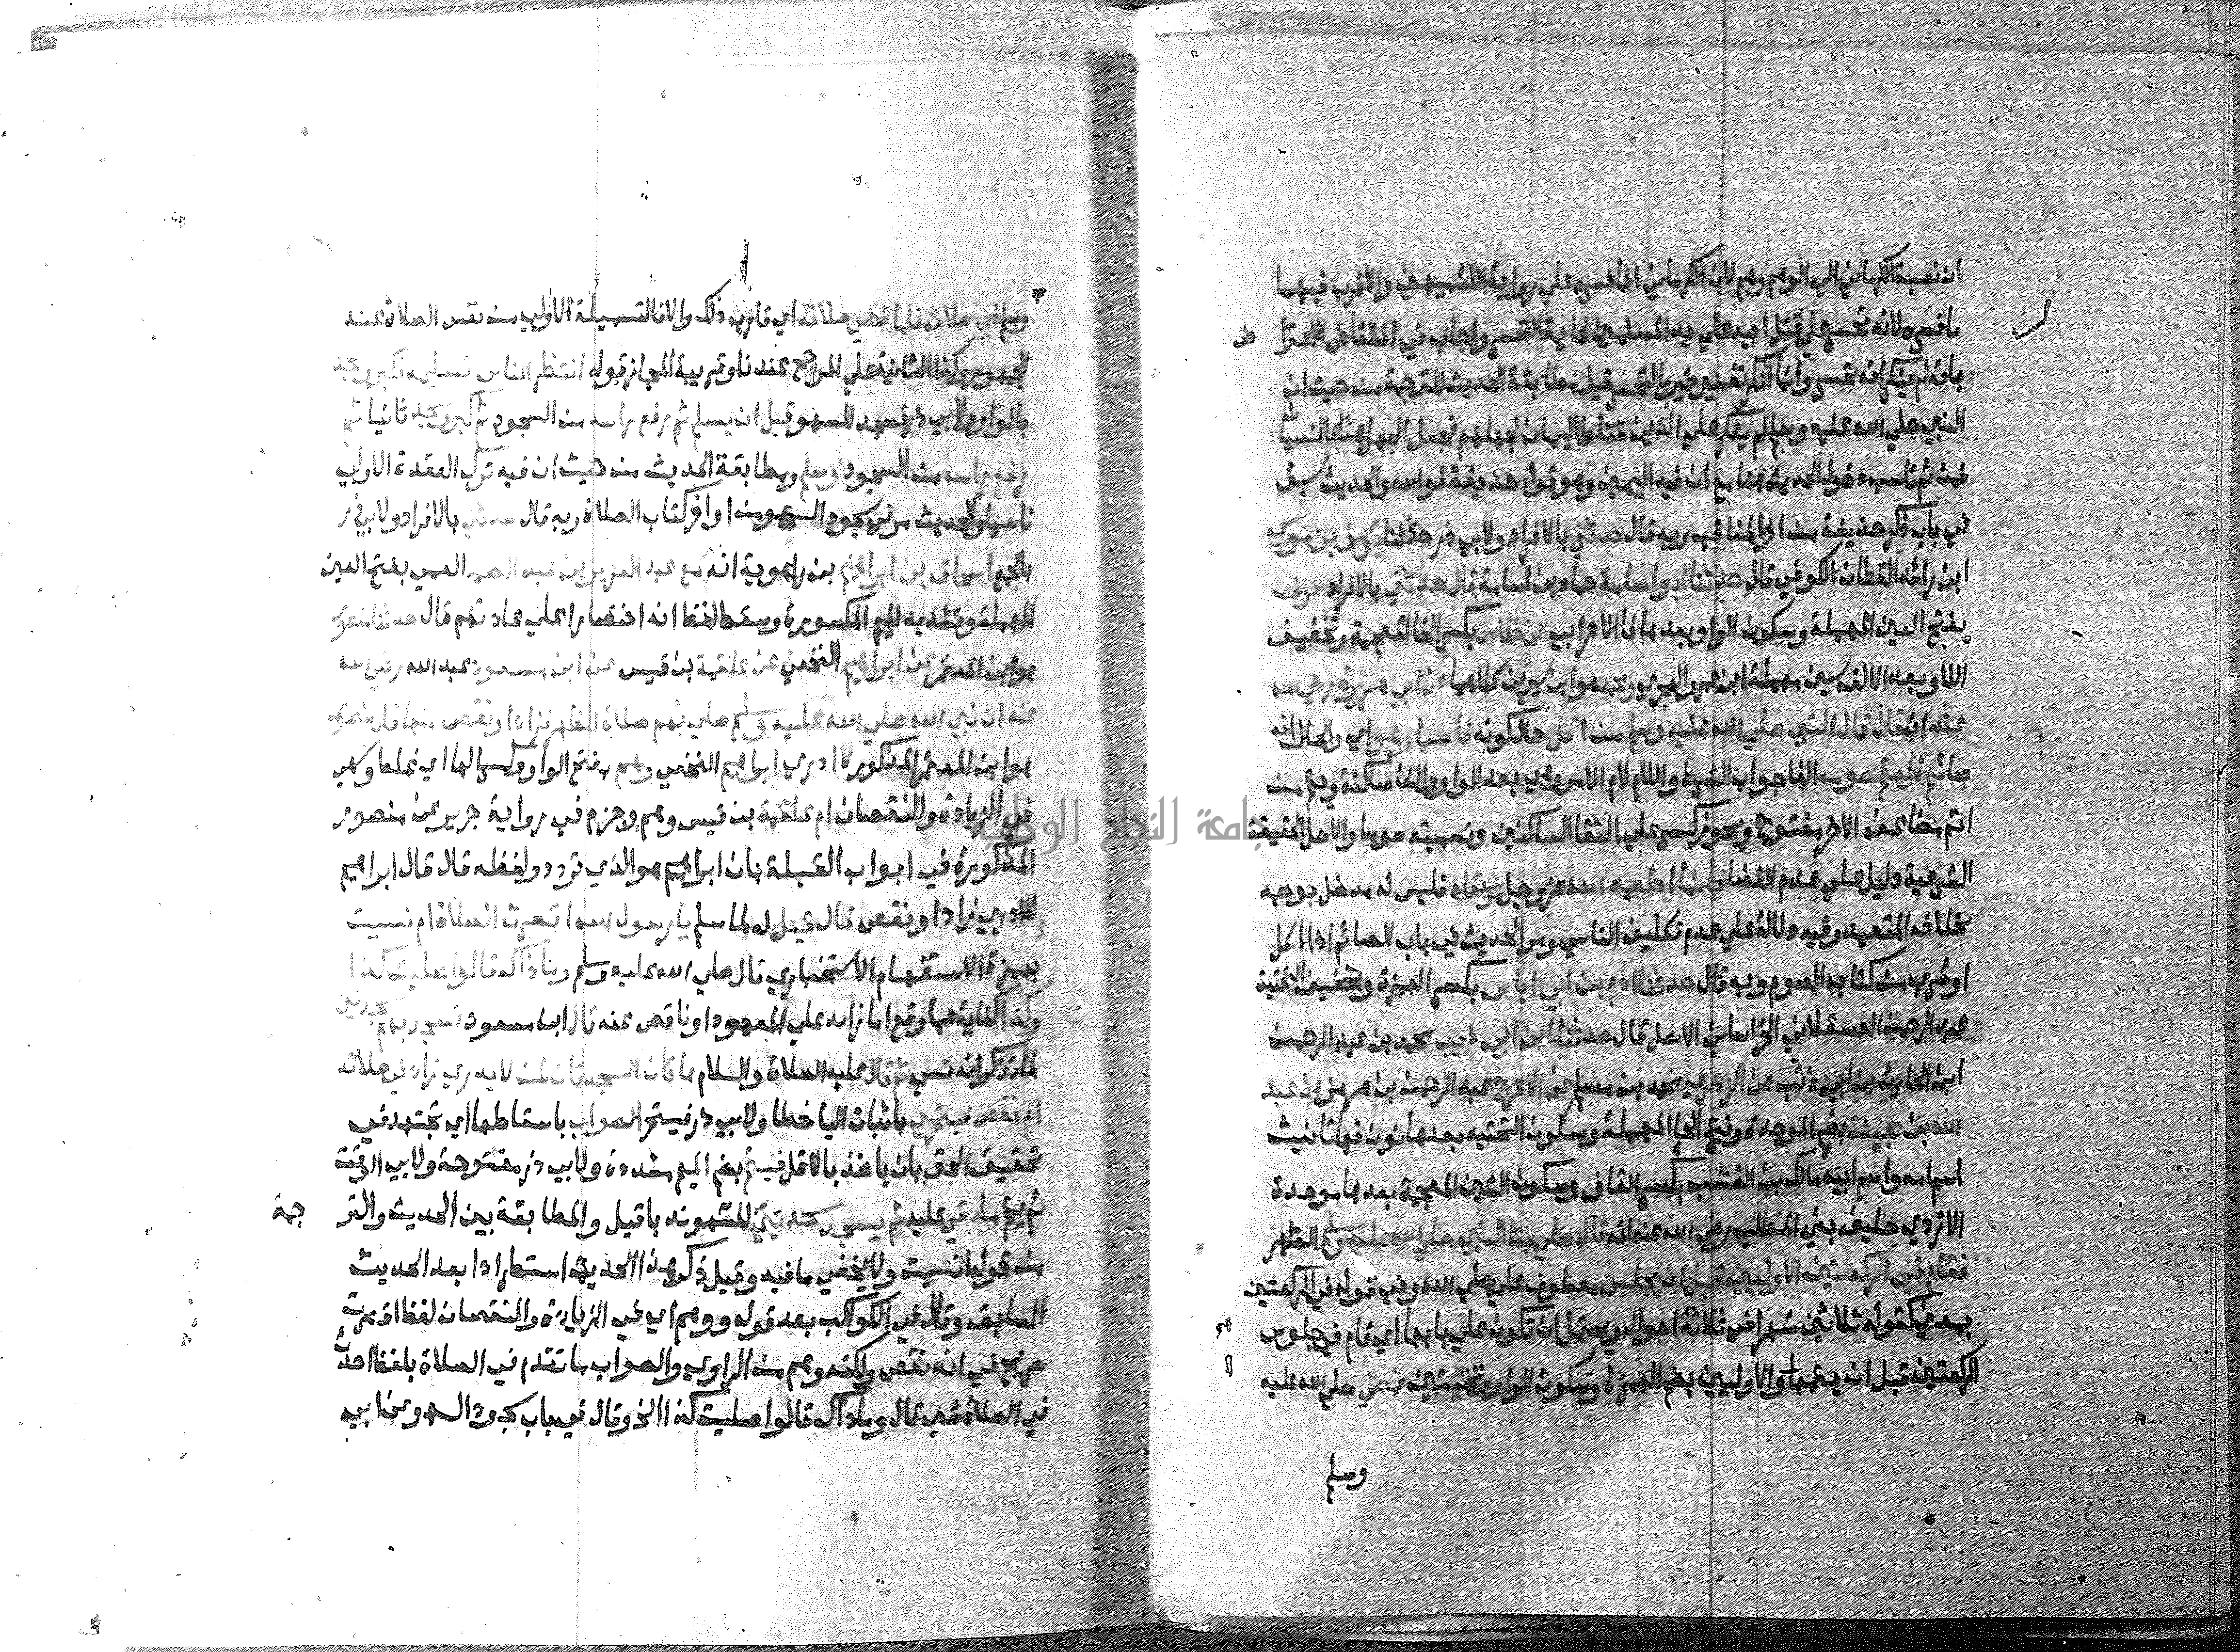 ان نسبة الكرماني الي الوهم وهم لان الكرماني انما فسره علي رواية الكشميهني والاقرب فيها
ما فسره لانه تحسر علي قتل ابيه علي يد المسلمين غاية التحسر واجاب في انتقاض الاعترا ض
بانه لم ينكر انه تحسر وانما انكر تفسير خير بالتحسر قيل مطابقة الحديث للترجمة من حيث ان
النبي صلي الله عليه وسلم لم ينكر علي الذين قتلوا اليمان لجهلهم فجعل الجهل هنا كالنسيان
فمن ثم ناسب دخول الحديث هنا مع ان فيه اليمين وهو قول حذيفة فوالله والحديث سبق
في باب ذكر حذيفة من اخر المناقب وبه قال حدثني بالافراد ولابي ذر حدثنا يوسف بن موسي
ابن راشد القطان الكوفي قال حدثنا ابو اسامة حماد بن اسامة قال حدثني بالافراد عوف
بفتح العين المهملة وسكون الواو بعدها فا الاعرابي عن خلاس بكسر الخا المعجمة وتخفيف
اللام وبعد الالف سين مهملة ابن عمرو الهجري ومحمد هو ابن سيرين كلاهما عن ابي هريرة رضي الله
عنه انه قال قال النبي صلي الله عليه وسلم من اكل حال كونه ناسيا وهو اي والحال انه
صائم فليتم صومه الفا جواب الشرط واللام لام الامر وهي بعد الواو والفا ساكنة ويتم من
اتم مضاعف الاخر مفتوح ويجوز كسره علي التقا الساكنين وتسميته صوما والاصل الحقيقة
الشرعية دليل علي عدم القضا فانما اطعمه الله عز وجل وسقاه فليس له مدخل بوجه
بخلاف المتعمد وفيه دلالة علي عدم تكليف الناسي ومر الحديث في باب الصائم اذا اكل
او شرب من كتاب الصوم وبه قال حدثنا ادم بن ابي اياس بكسر الهمزة وتخفيف التحتية
عبد الرحمن العسقلاني الخراساني الاصل قال حدثنا ابن ابي ذيب محمد بن عبد الرحمن
ابن الحارث بن ابي ذئب عن الزهري محمد بن مسلم عن الاعرج عبد الرحمن بن هرمز عن عبد
الله بن بحينة بضم الموحدة وفتح الحا المهملة وسكون التحتيه بعدها نون فها تانيث
اسم امه واسم ابيه مالك بن القشب بكسر القاف وسكون الشين المعجمة بعدها موحدة
الازدي حليف بني المطلب رضي الله عنه انه قال صلي بنا النبي صلي الله عليه وسلم الظهر
فقام في الركعتين الاوليين قبل ان يجلس معطوف علي صلي الله وفي قوله في الركعتين
بمعني كقوله ثلاثين شهرا في ثلاثة احوال ويحتمل ان تكون علي بابها اي قام في جلوس
الركعتين قبل ان يتمها والاوليين بضم الهمزة وسكون الواو وتحتيتين فمضي صلي الله عليه
وسلم
وسلم في صلاته فلما قضي صلاته اي قارب ذلك والا فالتسليمة الاولي من نفس الصلاة عند
الجمهور وكذا الثانية علي المرجح عندنا وقرينة المجاز قوله انتظر الناس تسليمه فكبر وسجد
بالواو ولابي ذر فسجد للسهو قبل ان يسلم ثم رفع راسه من السجود ثم كبر وسجد ثانيا ثم
رفع راسه من السجود وسلم ومطابقة الحديث من حيث ان فيه ترك القعدة الاولي
ناسيا والحديث مر في سجود السهو من اواخر كتاب الصلاة وبه قال حدثني بالافراد ولابي ذر
بالجمع اسحاق بن ابراهيم بن راهوية انه سمع عبد العزيز بن عبد الصمد العمي بفتح العين
المهملة وتشديد الميم المكسورة وسقط لفظ انه اختصارا علي عادتهم قال حدثنا منصور
هو ابن المعتمر عن ابراهيم النخعي عن علقمة بن قيس عن ابن مسعود عبد الله رضي الله
عنه ان نبي الله صلي الله عليه وسلم صلي بهم صلاة الظهر فزاد او نقص منها قال منصور
هو ابن المعتمر المذكور لا ادري ابراهيم النخعي وهم بفتح الواو وكسر الها اي غلط وسهي
في الزيادة والنقصان ام علقمة بن قيس وهم وجزم في رواية جرير عن منصور
المذكورة في ابواب القبلة بان ابراهيم هو الذي تردد ولفظه قال قال ابراهيم
لا ادري زاد او نقص قال قيل له لما سلم يا رسول الله اقصرت الصلاة ام نسيت
بهمزة الاستفهام الاستخباري قال صلي الله عليه وسلم وما ذاك قالوا صليت كذا
وكذا كناية عما وقع اما زائد علي المعهود او ناقص عنه قال ابن مسعود فسجد بهم سجدتين
لما تذكر انه نسي ثم قال عليه الصلاة والسلام هاتان السجدتان لمن لا يدري زاد في صلاته
ام نقص فيتحري باثبات اليا خطا ولابي ذر فيتحر الصواب باسقاطها اي يجتهد في
تحقيق الحق بان ياخذ بالاقل فيتم بضم الميم مشددة ولابي ذر مفتوحة ولابي الوقت
ثم يتم ما بقي عليه ثم يسجد سجدتين للسهو ندبا قيل والمطابقة بين الحديث والتر جمة
من قوله انسيت ولا يخفي ما فيه وقيل ذكر هذا الحديث استطرادا بعد الحديث
السابق وقال في الكواكب بعد قوله ووهم اي في الزيادة والنقصان لفظ اقصرت
صريح في انه نقص ولكنه وهم من الراوي والصواب ما تقدم في الصلاة بلفظ احدث
في الصلاة شي قال وما ذاك قالوا صليت كذا الخ وقال في باب سجود السهو عن ابي
جامعة النجاح الوطنية